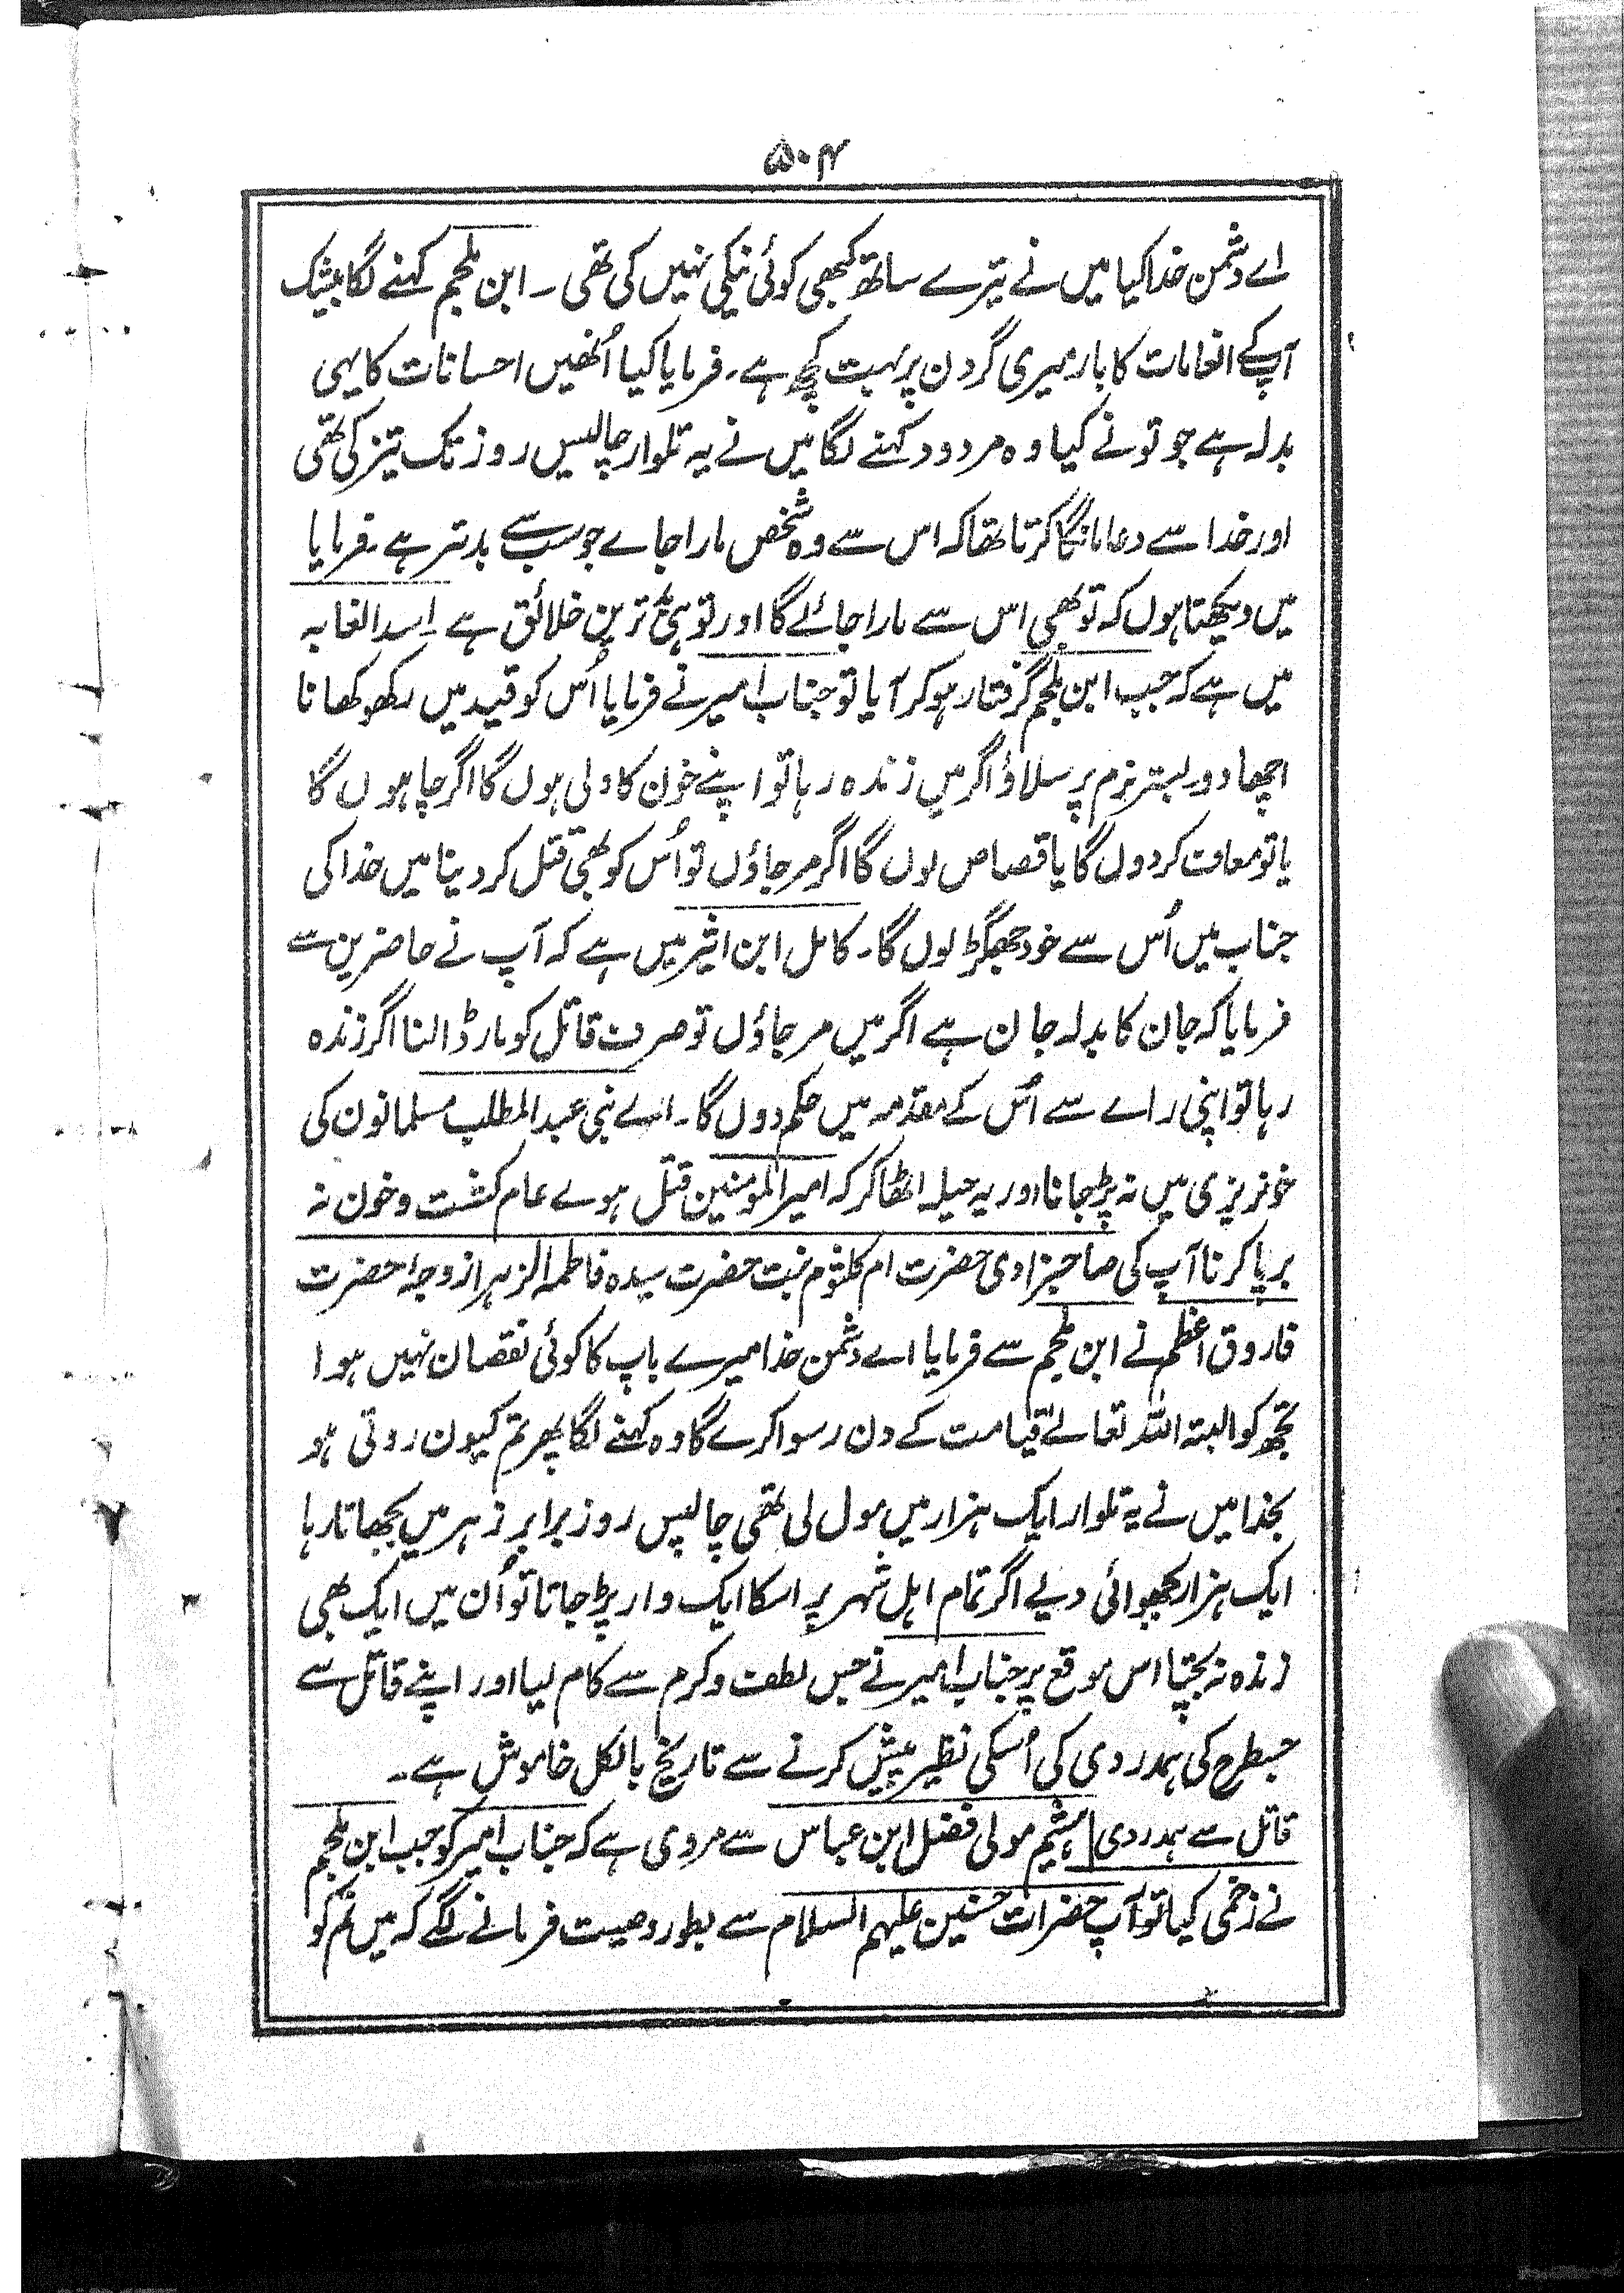 ۵۰۴
اے دشمن خدا کیا میں نے تیرے ساتھ کبھی کوئی نیکی نہیں کی تھی ۔ ابن ملجم کہنے لگا بیشک
آپ کے انعامات کا بار میری گردن پر بہت کچھ ہے ۔ فرمایا کیا اُنھیں احسانات کا یہی
بدلہ ہے جو تو نے کیا وہ مردود کہنے لگا میں نے یہ تلوار چالیس روز تک تیز کی تھی
اور خدا سے دعا مانگا کرتا تھا کہ اس سے وہ شخص مارا جاے جو سب سے بدتر ہے ۔ فرمایا
میں دیکھتا ہوں کہ تو بھی اس سے مارا جائے گا اور تو ہی ترین خلائق ہے ۔ اسد الغابہ
میں ہے کہ جب ابن ملجم گرفتار ہو کر آیا تو جناب امیر نے فرمایا اُس کو قید میں رکھو کھانا
اچھا دو بستر نرم پر سلاؤ اگر میں زندہ رہا تو اپنے خون کا ولی ہوں گا اگر چاہوں گا
یا تو معاف کر دوں گا یا قصاص لوں گا اگر مر جاؤں تو اُس کو بھی قتل کر دینا میں خدا کی
جناب میں اُس سے خود جھگڑ لوں گا ۔ کامل ابن اثیر میں ہے کہ آپ نے حاضرین سے
فرمایا کہ جان کا بدلہ جان ہے اگر میں مر جاؤں تو صرف قاتل کو مار ڈالنا اگر زندہ
رہا تو اپنی راے سے اُس کے مقدمہ میں حکم دوں گا ۔ اے بنی عبد المطلب مسلمانون کی
خونریزی میں نہ پڑ جانا اور یہ حیلہ اٹھا کر کہ امیر المومنین قتل ہوے عام کشت و خون نہ
برپا کرنا آپ کی صاحبزادی حضرت ام کلثوم بنت حضرت سیدہ فاطمہ الزہرا زوجہ حضرت
فاروق اعظم نے ابن ملجم سے فرمایا اے دشمن خدا میرے باپ کا کوئی نقصان نہیں ہوا
تجھ کو البتہ اللہ تعالےٰ قیامت کے دن رسوا کرے گا وہ کہنے لگا پھر تم کیون روتی ہو
بخدا میں نے یہ تلوار ایک ہزار میں مول لی تھی چالیس روز برابر زہر میں بجھاتا رہا
ایک ہزار بجھوائی دیے اگر تمام اہل شہر پر اسکا ایک وار پڑ جاتا تو اُن میں ایک بھی
زندہ نہ بچتا اس موقع پر جناب امیر نے جس لطف و کرم سے کام لیا اور اپنے قاتل سے
جسطرح کی ہمدردی کی اُسکی نظیر پیش کرنے سے تاریخ بالکل خاموش ہے ۔
قاتل سے ہمدردی | ہشیم مولی فضل ابن عباس سے مروی ہے کہ جناب امیر کو جب ابن ملجم
نے زخمی کیا تو آپ حضرات حسنین علیہم السلام سے بطور وصیت فرمانے لگے کہ میں تم کو